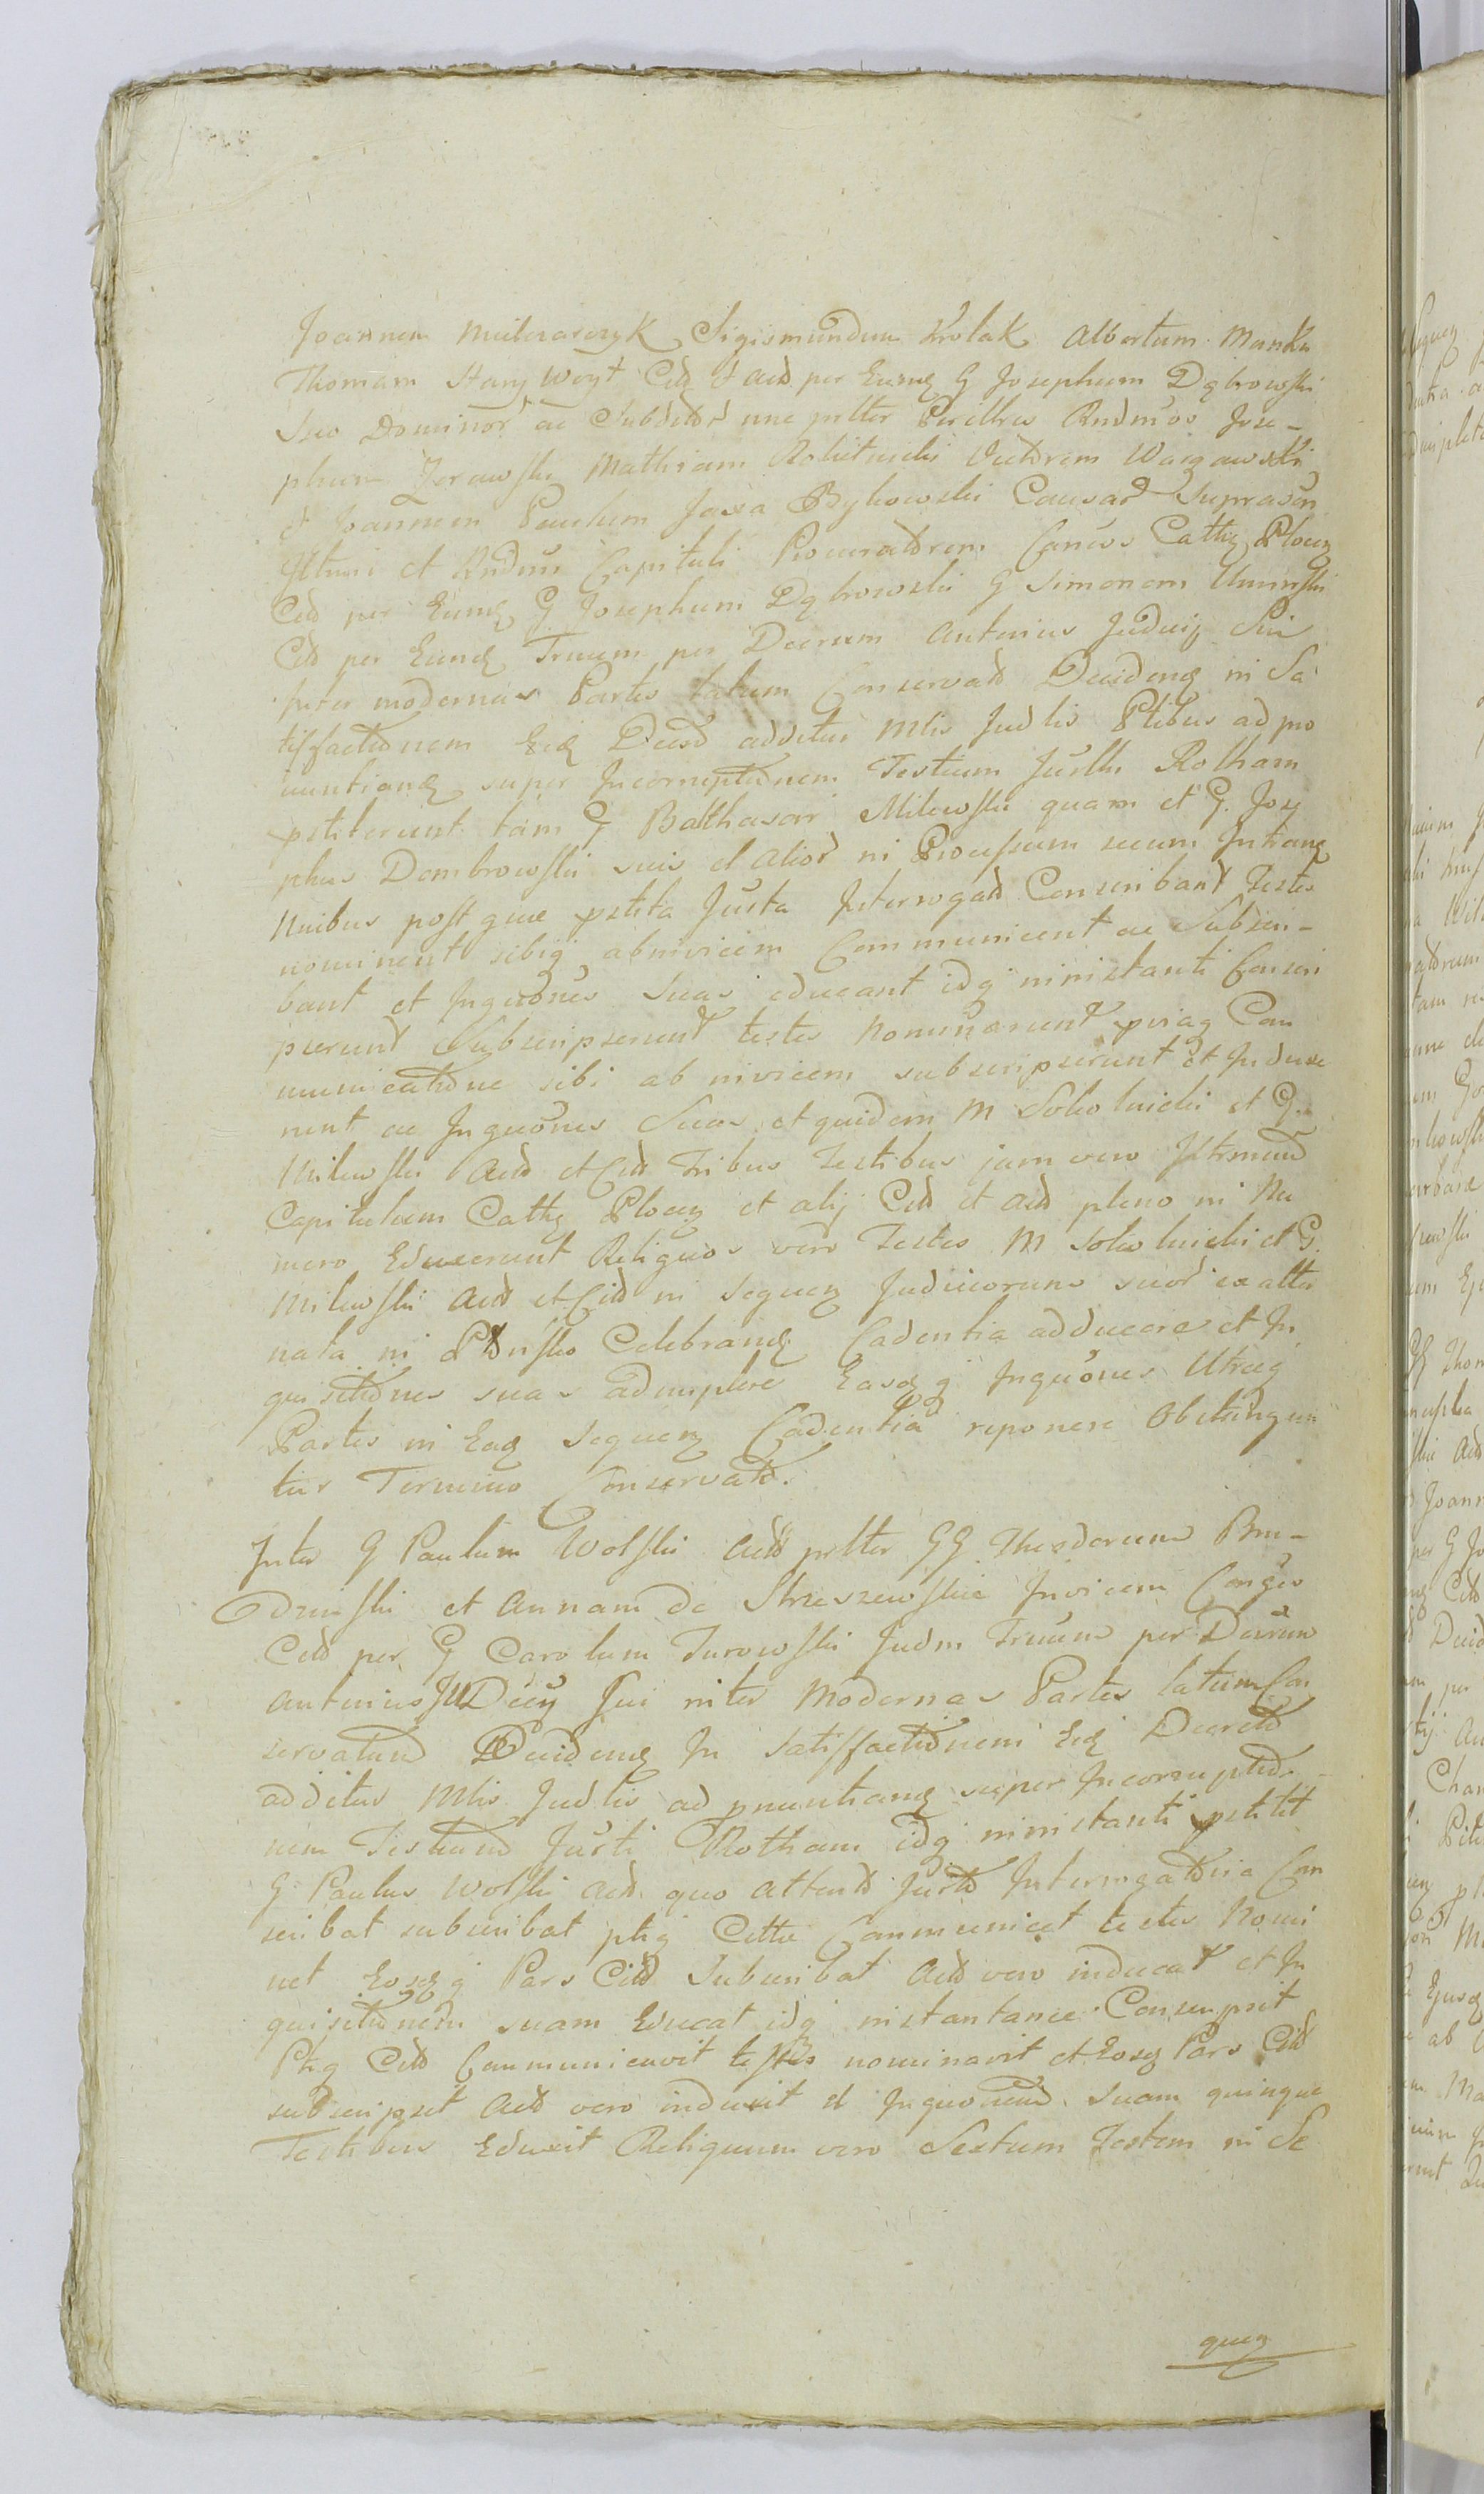 Joannem Mielczarczyk Sigismundum Krolak Albertum Manka
Thomam Stary Woyt Citt et Act per Eumq G Josephum Dąbrowski
Suo Dominor ac Subditor nne prtter Perillres Rndmos Jose-
phum Zerawski Mathiam Rokitnicki Victorem Waigawski
et Joannem Paulum Jaxa Bykowski Causar Suprascr
Illtmi et Rndmi Capituli Procuratorem Cancos Cathz Plocen
Citt per Eumq G Josephum Dąbrowski G Simonem Uminski
Citt per Eumq Trnum per Decrum Anterius Judicij Sui
Inter modernas Partes latum Conservatt Decidenq in Sa
tisfactionem Eiq Decrt additus Mlis Judlis Ptibus ad pro
nuntianq super Incorruptionem Testium Justti Rotham
pstiterunt tam G Balthasar Milewski quam et G. Jose
phus Dombrowski suis et alior in Processum secum Intranq
Nnibus post que pstita Jurta Interrogatt Conscribant Testes
nominent sibiq abinvicem Communicent ac Subscri-
bant et Inquones Suas educant idq ininstanti Conscri
pserunt Subscripserunt testes Nominarunt priaq Com
municatione sibi ab invicem subscripserunt et Induxe
runt ac Inquones Suas et quidem M Sokolnicki et G.
Milewski Act et Citt Tribus Testibus jam vero Illtrmum
Capitulum Cathz Plocen et alij Citt et Act pleno in Nu
mero Eduxerunt Reliquos vero Testes M Sokolnicki et G.
Milewski Act et Citt in sequen Judiciorum suor ex alter
nata in Płońsko Celebranq Cadentia adducere et In
quisitiones suas adimplere Easq q Inquones Utreq
Partes in Eaq sequen Cadentia reponere Obstringun
tur Termino Conservatt.
Inter G Paulum Wolski Act prtter GG Theodorum Bru-
dzinski et Annam de Strzeszewskie Invicem Conges
Citt per G Carolum Turowski Judm Trnum per Decrum
Anterius Judicij Sui inter Modernas Partes latum Con
servatum Decidenq In Satisfactionem Eiq Decreto
additus Mlis Judlis ad pnuntianq super Incorruptio-
nem Testium Jurti Rotham idq ininstanti pstitit
G Paulus Wolski Act quo attento Jurto Interrogatoria Con
scribat subscribat ptiq Citte Communicet testes Nomi
net Eosq q Pars Citt Subscribat Act vero inducat et In
quisitionem suam Educat idq instantanee Conscripsit
Ptiq Citt Communicavit testes nominavit et Eosq Pars Citt
subscripsit Act vero induxit et Inquonem suam quinque
Testibus Eduxit Reliquum vero Sextum Testem in Se
quen